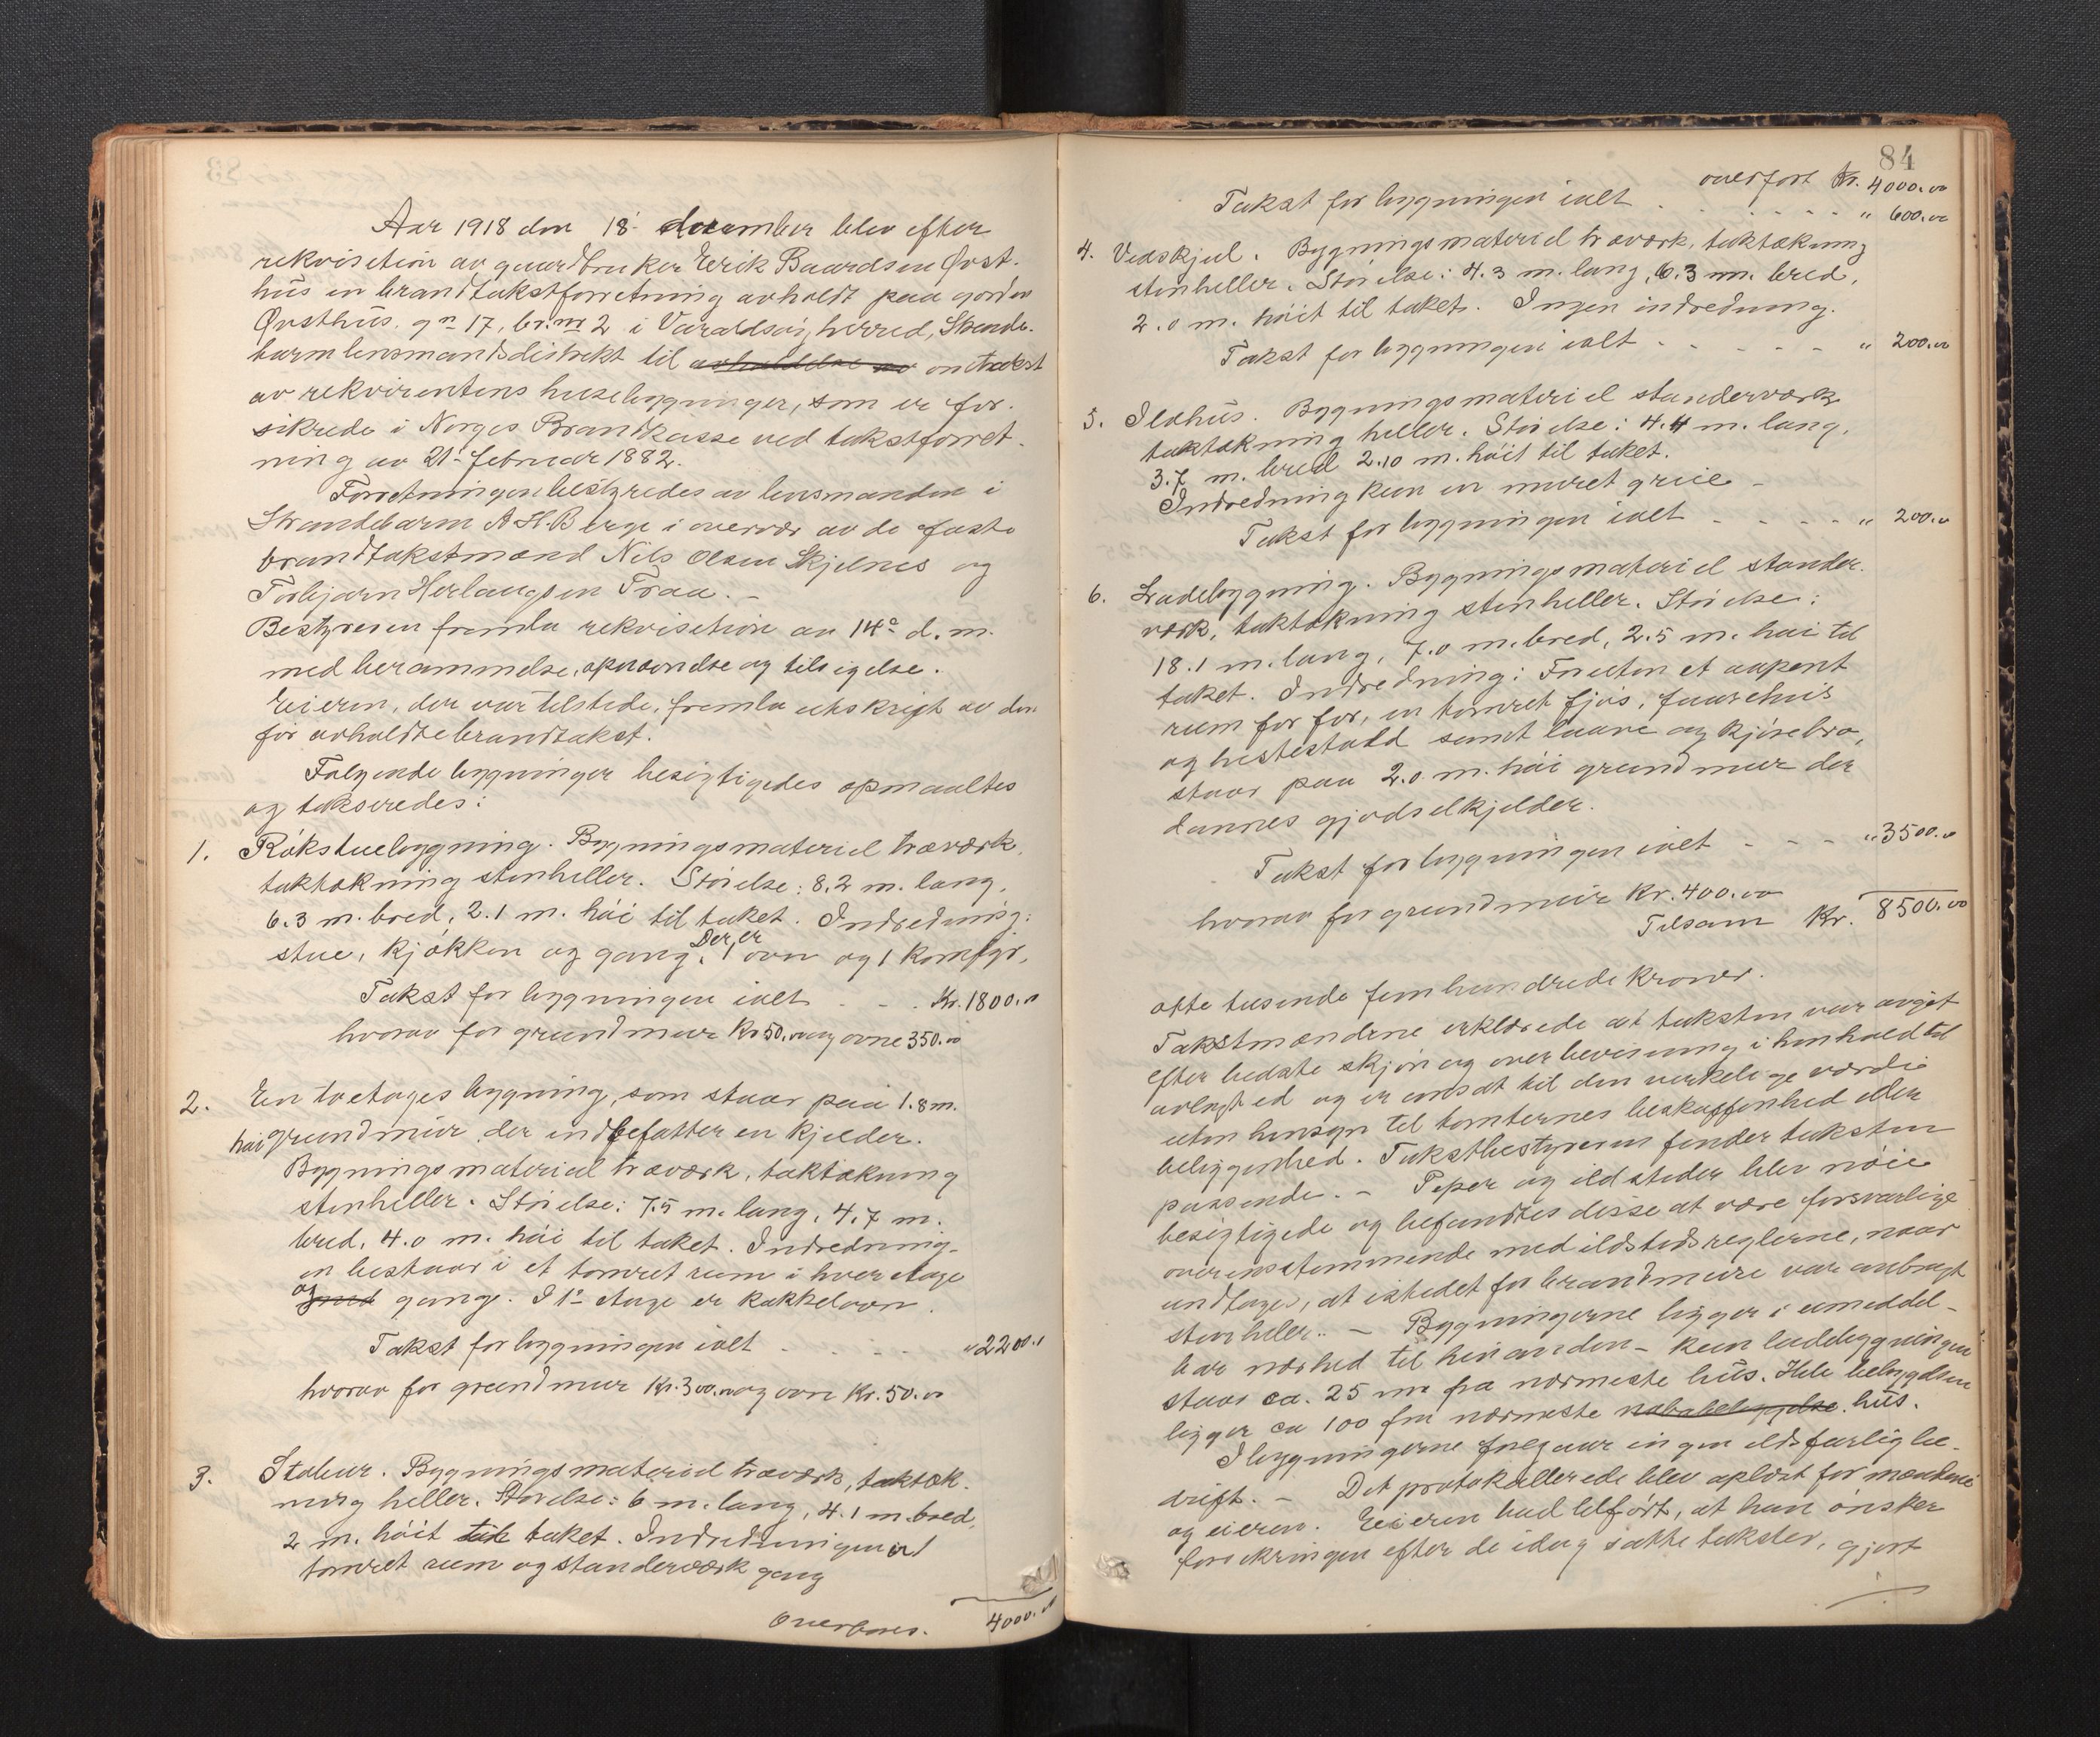 Aar 1918 den 18. december blev efter
rekvisition av gaardbruker Erik Baardsen Øvst-
hus en brandtakstforretning avholdt paa gorden
Øvsthus, gn 17, br. nr 2 i Varaldsøy herred, Strande-
barm lensmandsdistrikt til avholdelse av omtakst
av rekvirentens husebygninger, som er for-
sikrede i Norges Brandkasse ved takstforret-
ning av 21. februar 1882.
Forretningen bestyredes av lensmanden i
Strandebarm A H. Berge i overvær av de faste
brandtakstmænd Nils Olsen Skjelnes og
Torbjørn Herlaugsen Traa. -
Bestyreren fremla rekvisition av 14de d. m.
med berammelse, opnævndse og tilsigelse.
Eieren, der var tilstede, fremla utskrift av den
før avholdte brandtakst.
Følgende bygninger besigtigedes opmaaltes
og takseredes:
1. Røkstuebygning. Bygningsmateriel træverk,
taktækning stenheller. Størelse: 8,2 m. lang,
6.3 m. bred, 2.1 m. høi til taket. Indredning:
stue, kjøkken og gang. Der er 1 ovn og 1 komfyr.
Takst for bygningen ialt . . . Kr. 1800.00
hvorav for grundmur Kr 50.00 og ovne 350.00
2. En toetages bygning, som staar paa 1.8 m.
høi grundmur der indbefatter en kjelder.
Bygningsmateriel træverk, taktækning
stenheller. Størelse: 7.5 m. lang, 4.7 m.
bred, 4.0 m. høi til taket. Indredning-
en bestaar i et tømret rum i hver etage
og med gang. I 1ste etage er kakkelovn.
Takst for bygningen ialt . . . . " 2200.00
hvorav for grundmur Kr. 300.00 og ovn Kr. 50.00
3. Stabur. Bygningsmateriel træverk, taktæk-
ning heller. Størelse: 6 m. lang, 4.1 m bred,
2 m. høit til taket. Indredningen er 1
tømret rum og stenderværk gang
Overføres. 4000.00
84
overført Kr. 4000.00
Takst for bygningen ialt . . . . . . " 600.00
4. Vedskjul. Bygningsmateriel træverk, taktækning
stenheller. Størelse: 4.3 m. lang, 6.3 m. bred,
2.0 m. høit til taket. Ingen indredning.
Takst for bygningen ialt - - - - - " 200.00
5. Ildhus. Bygningsmateriel stenderværk
taktækning heller. Størelse: 4.4 m. lang,
3.7 m. bred 2.10 m. høit til taket.
Indredning kun en muret grue -
Takst for bygningen ialt - - - - " 200.00
6. Ladebygning. Bygningsmateriel stender-
værk, taktækning stenheller. Størelse:
18.1 m. lang, 7.0 m. bred, 2.5 m. høi til
taket. Indredning: Foruten et aapent
rum for for, en tømret fjøs, faarehus
og hestestald samt laave og kjørebro,
staar paa 2.0 m. høi grundmur der
dannes gjødselkjelder.
Takst for bygningen ialt - - - " 3500.00
hvorav for grundmur Kr. 400.00
Tilsam Kr. 8500.00
otte tusende femhundrede kroner.
Takstmændene erklærede at taksten var avgit
efter bedste skjøn og overbevisning i henhold til
avlagt ed og er ansat til den virkelige værdi
uten hensyn til tomternes beskaffenhed eller
beliggenhed. Takstbestyreren finder taksten
passende. - Piper og ildsteder blev nøie
besigtigede og befandtes disse at være forsvarlige
overensstemmende med ildstedsreglerne, naar
undtages, at istedet for brandmure var anbragt
stenheller. - Bygningerne ligger i umiddel-
bar nærhed til hinanden - kun ladebygningen
staar ca. 25 m fra nærmeste hus. Hele bebygelsen
ligger ca 100 fra nærmeste nabobebygelse. hus.
I bygningerne foregaar ingen ildsfarlig be-
drift. - Det protokollerede blev oplæst for mændene
og eieren. Eieren bad tilført, at han ønsker
forsikringen efter de idag satte takster, gjort